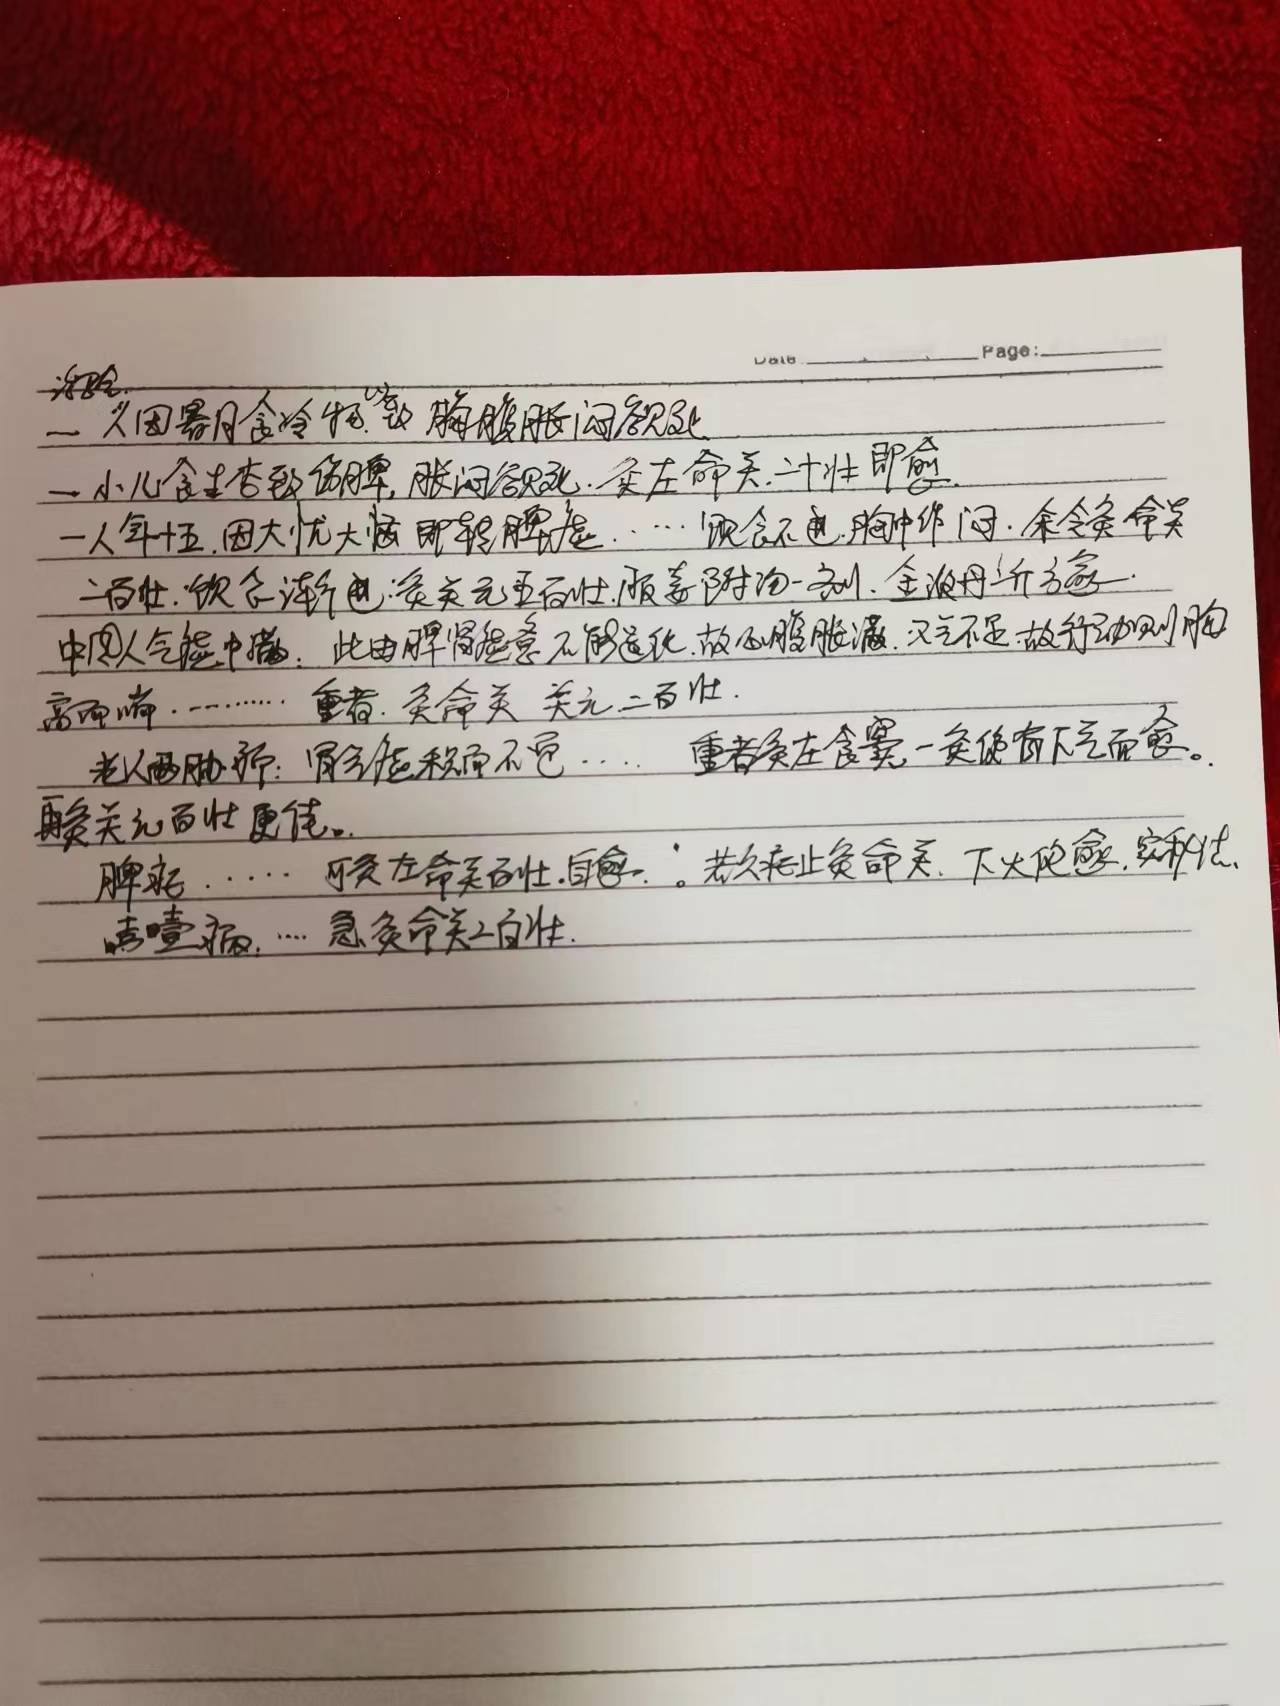 Date Page:
治验
一人因暑月食冷物,致胸腹胀闷欲死
一小儿食生杏致伤脾,胀闷欲死.灸左命关二十壮即愈.
一人年十五,因大忧大恼即转脾虚.……饮食不进,胸中作闷.余令灸命关
二百壮.饮食渐进.灸关元五百壮.服姜附汤一剂.金液丹二斤方愈.
中风人气虚中满:此由脾肾虚惫不能运化.故心腹胀满.又气不足.故行动则胸
高而喘.………重者.灸命关 关元二百壮.
老人两胁痛:胃气虚积而不通…… 重者灸左食窦,一灸便有下气而愈。
再灸关元百壮更佳。
脾疟…… 可灸左命关百壮.自愈.。若久疟止灸命关.下火便愈,实秘法、
喜噎病.…急灸命关二百壮.